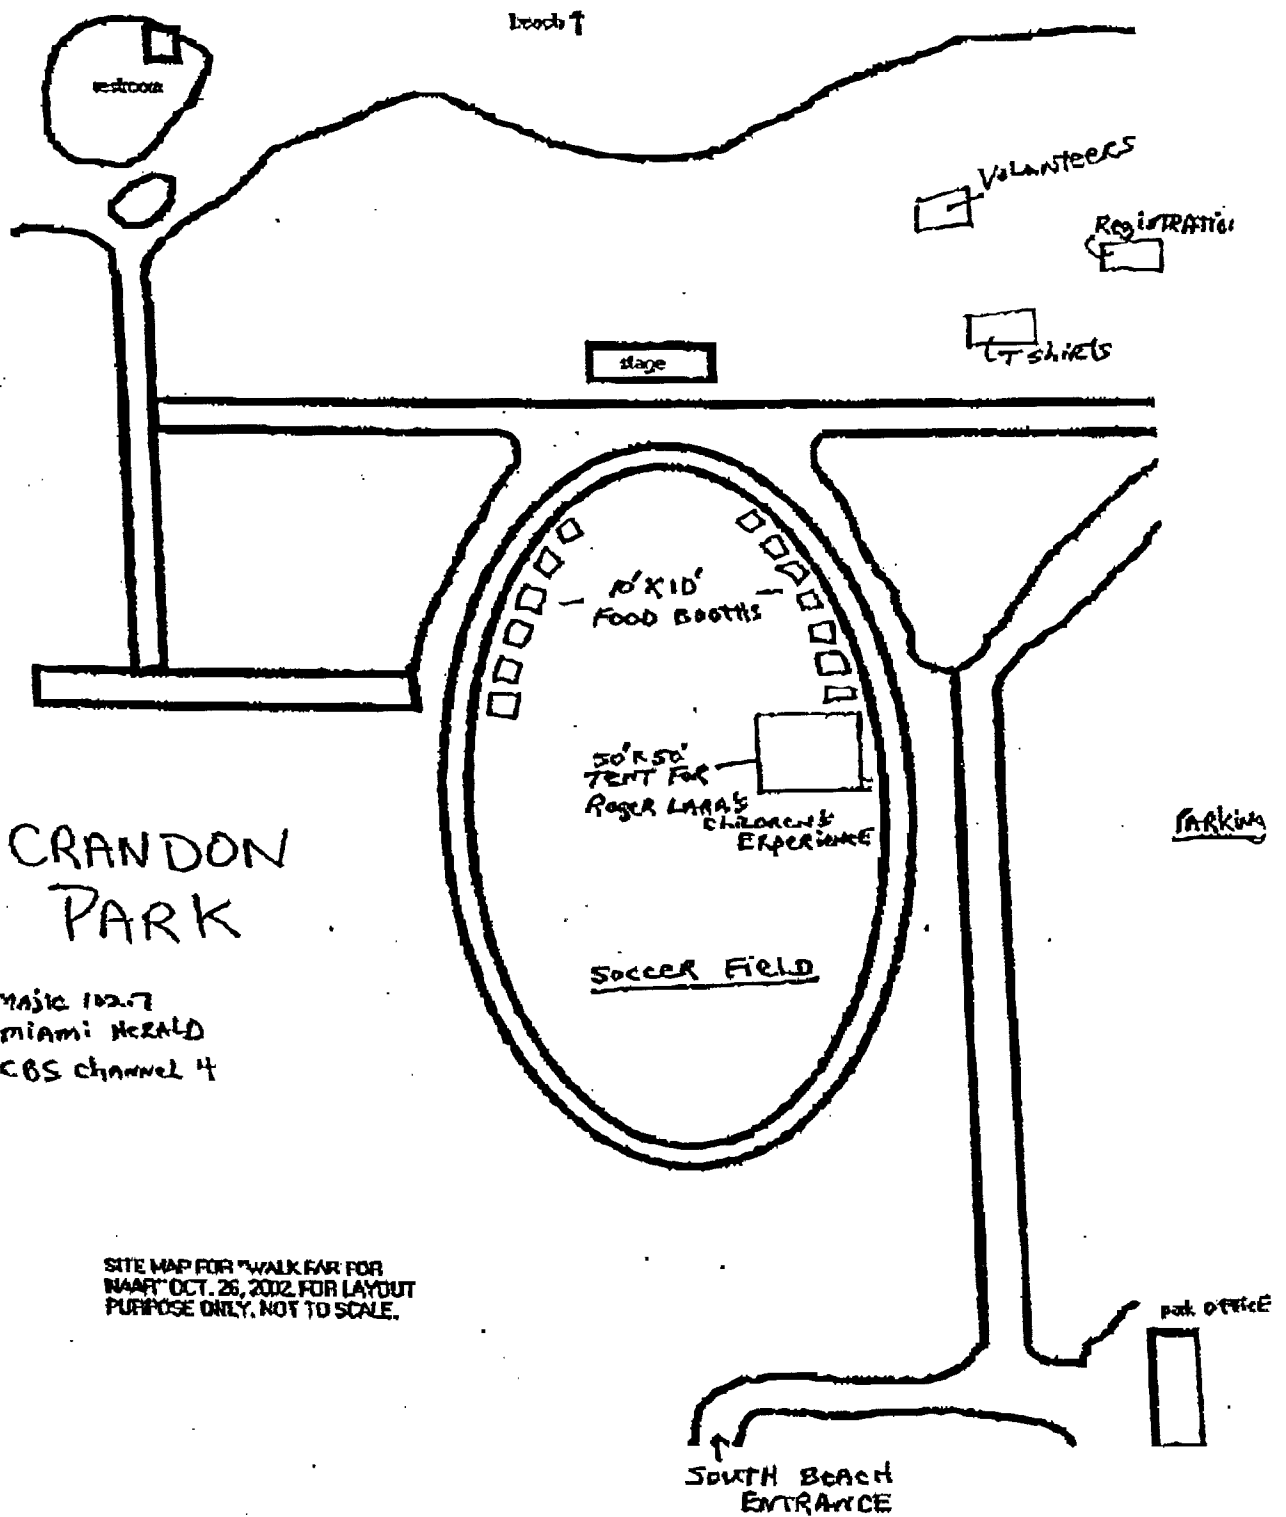 beach ↑
restroom
VOLANTEERS
REGISTRATION
T ShiRTS
stage
10' X 10'
FOOD BOOTHS
50' X 50'
TENT FOR
ROGER LARA'S
CHILDREN'S
EXPERIENCE
PARKING
CRANDON
PARK
SOCCER FIELD
MAJIC 102.7
MIAMI HERALD
CBS Channel 4
SITE MAP FOR "WALK FAR FOR
NAAR" OCT. 26, 2002. FOR LAYOUT
PURPOSE ONLY. NOT TO SCALE.
park OFFICE
SOUTH BEACH
ENTRANCE